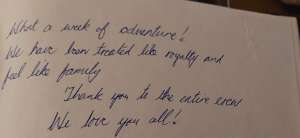 What a week of adventure!
We have been treated like royalty and
feel like family
Thank you to the entire crew
We love you all!